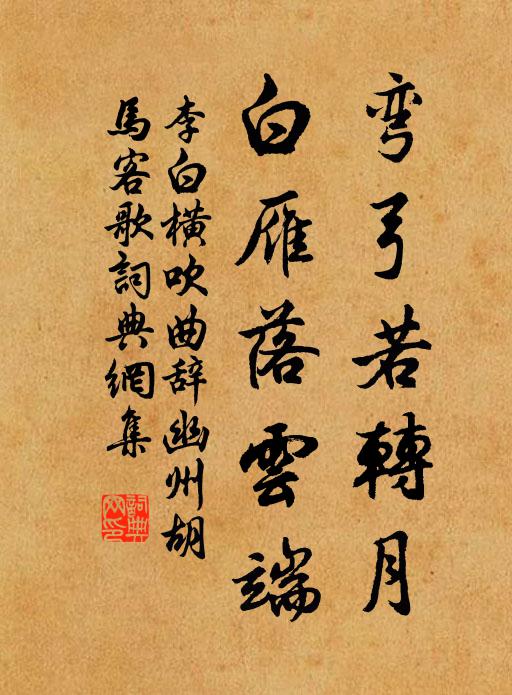 弯弓若轉月
白雁落雲端
李白橫吹曲辞幽州胡
馬客歌詞典網集
詞典網印